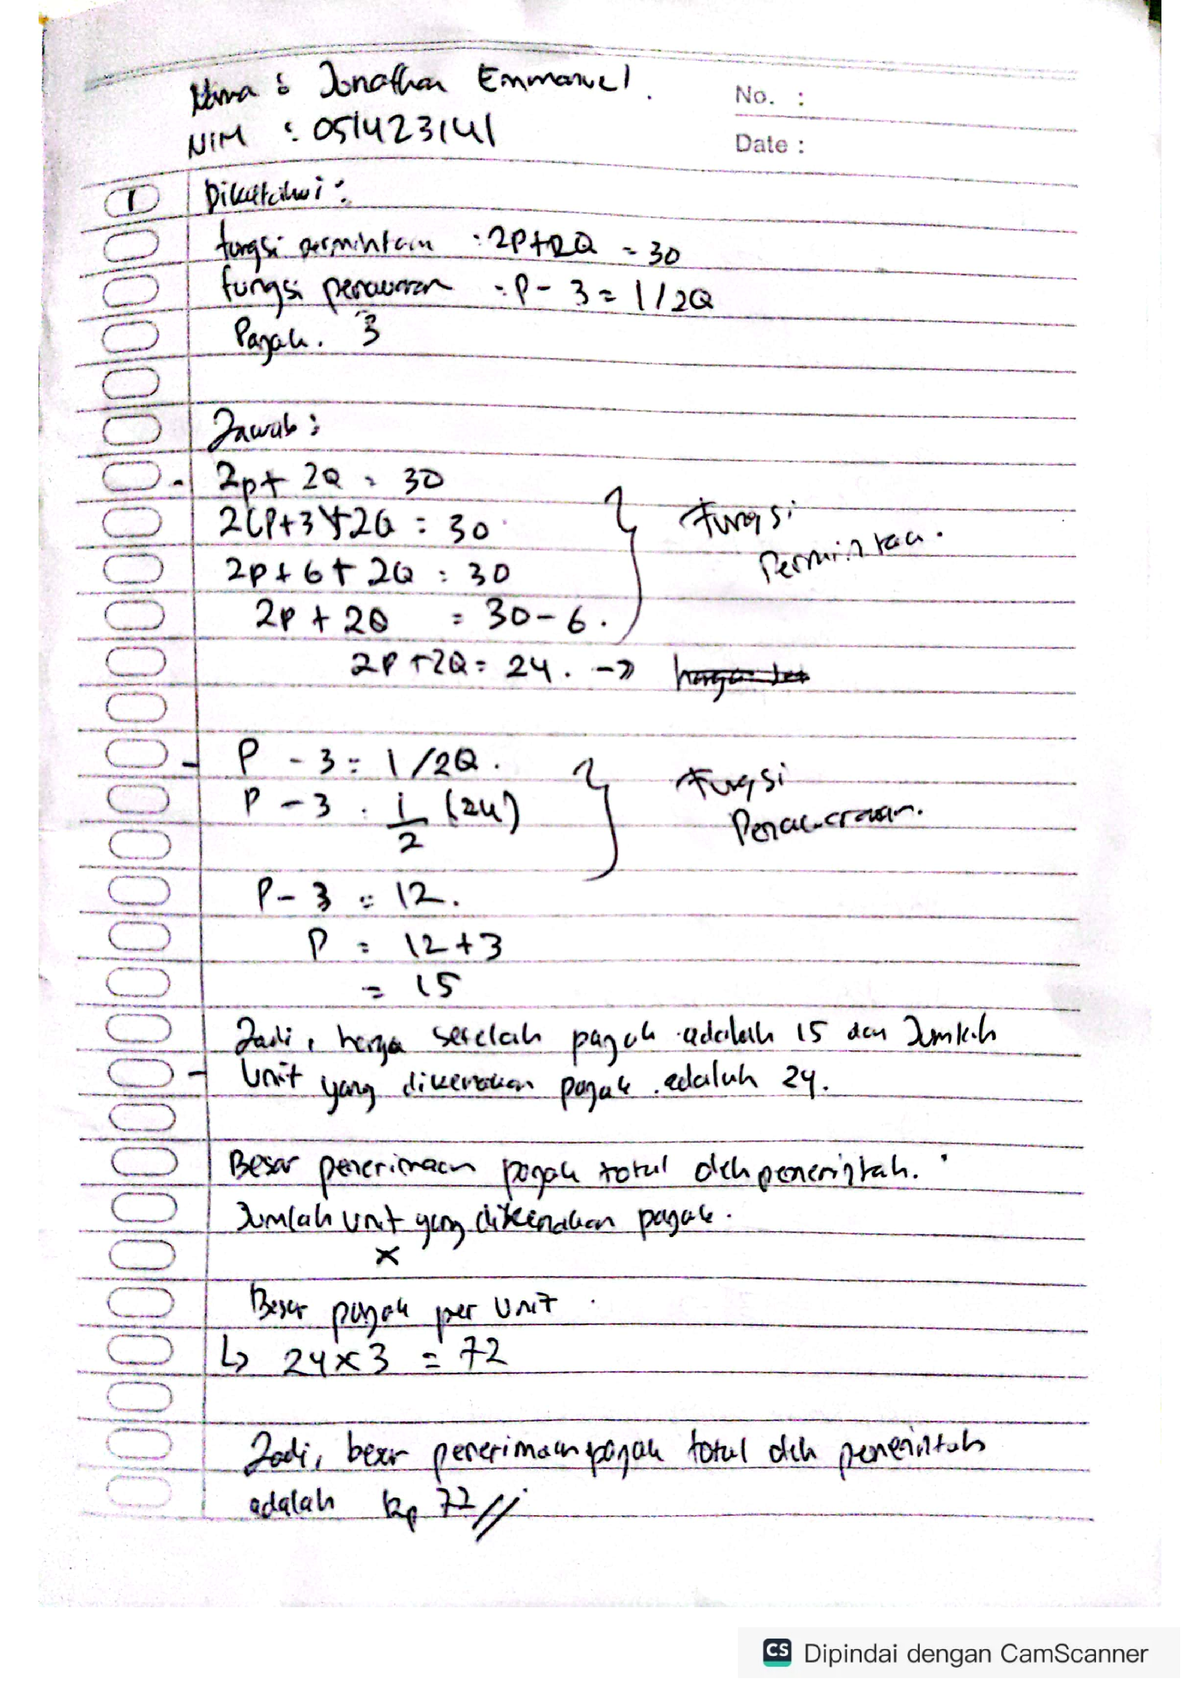 Nama : Jonathan Emmanuel.
No. :
NIM : 051423141
Date :
1 Diketahui :
fungsi permintaan : 2P+2Q = 30
fungsi penawaran : P - 3 = 1/2Q
Pajak : 3
Jawab :
- 2p + 2Q = 30
2(P+3)+2Q = 30
2p + 6 + 2Q = 30
2P + 2Q = 30 - 6.
Fungsi
Permintaan.
2P + 2Q = 24. ->
- P - 3 = 1/2Q.
P - 3 = 1/2 (24)
Fungsi
Penawaran.
P - 3 = 12.
P = 12 + 3
= 15
Jadi, harga setelah pajak adalah 15 dan Jumlah
- Unit yang dikenakan pajak adalah 24.
Besar penerimaan pajak total oleh pemerintah :
Jumlah unit yang dikenakan pajak.
x
Besar pajak per unit.
↳ 24 x 3 = 72
Jadi, besar penerimaan pajak total oleh pemerintah
adalah Rp 72 //
CS Dipindai dengan CamScanner